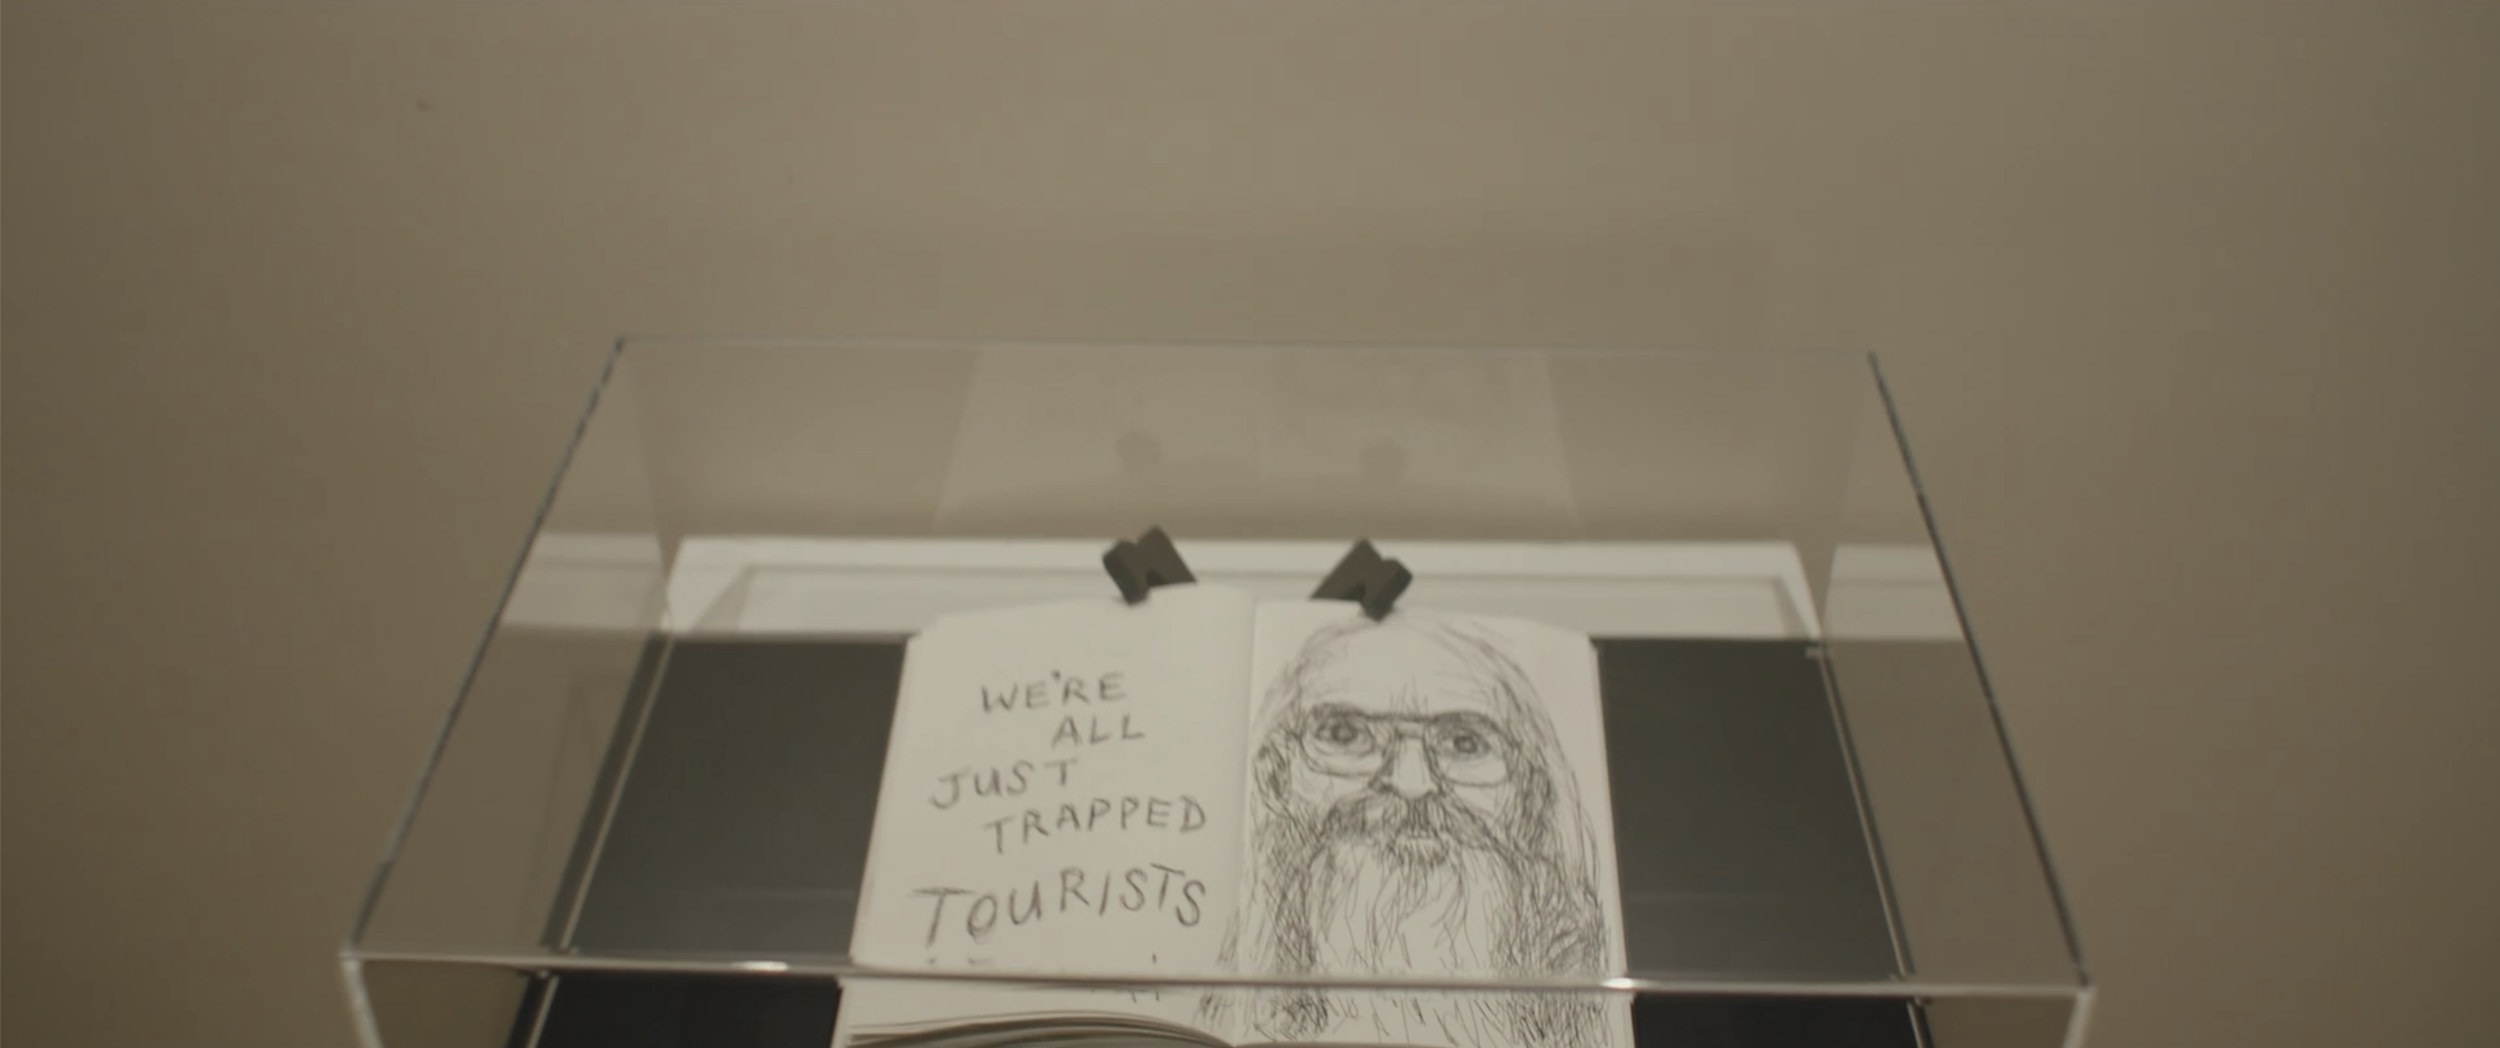 WE'RE
ALL
JUST
TRAPPED
TOURISTS